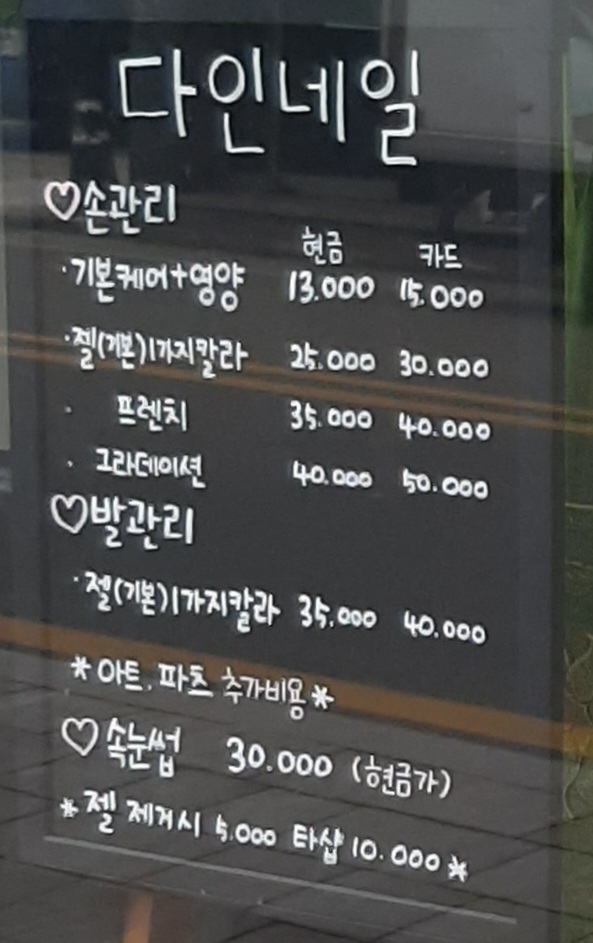 다인네일
♡손관리
현금 카드
·기본케어+영양 13.000 15.000
·젤(기본)1가지칼라 25.000 30.000
· 프렌치 35.000 40.000
· 그라데이션 40.000 50.000
♡발관리
·젤(기본)1가지칼라 35.000 40.000
*아트, 파츠 추가비용*
♡속눈썹 30.000 (현금가)
*젤 제거시 5.000 타샵 10.000*